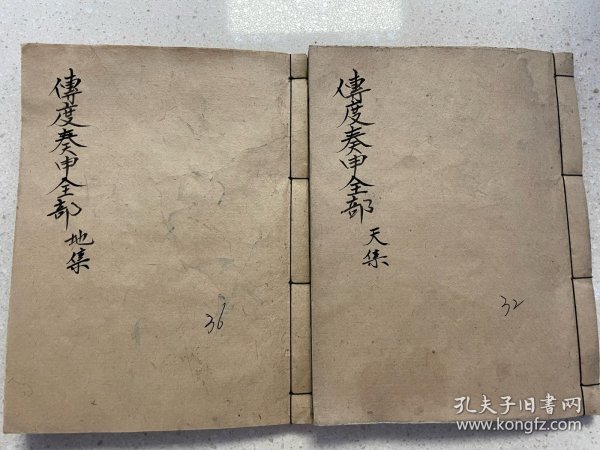 傳度奏申全部 天集
32
傳度奏申全部 地集
36
孔夫子旧書网
www.kongfz.com